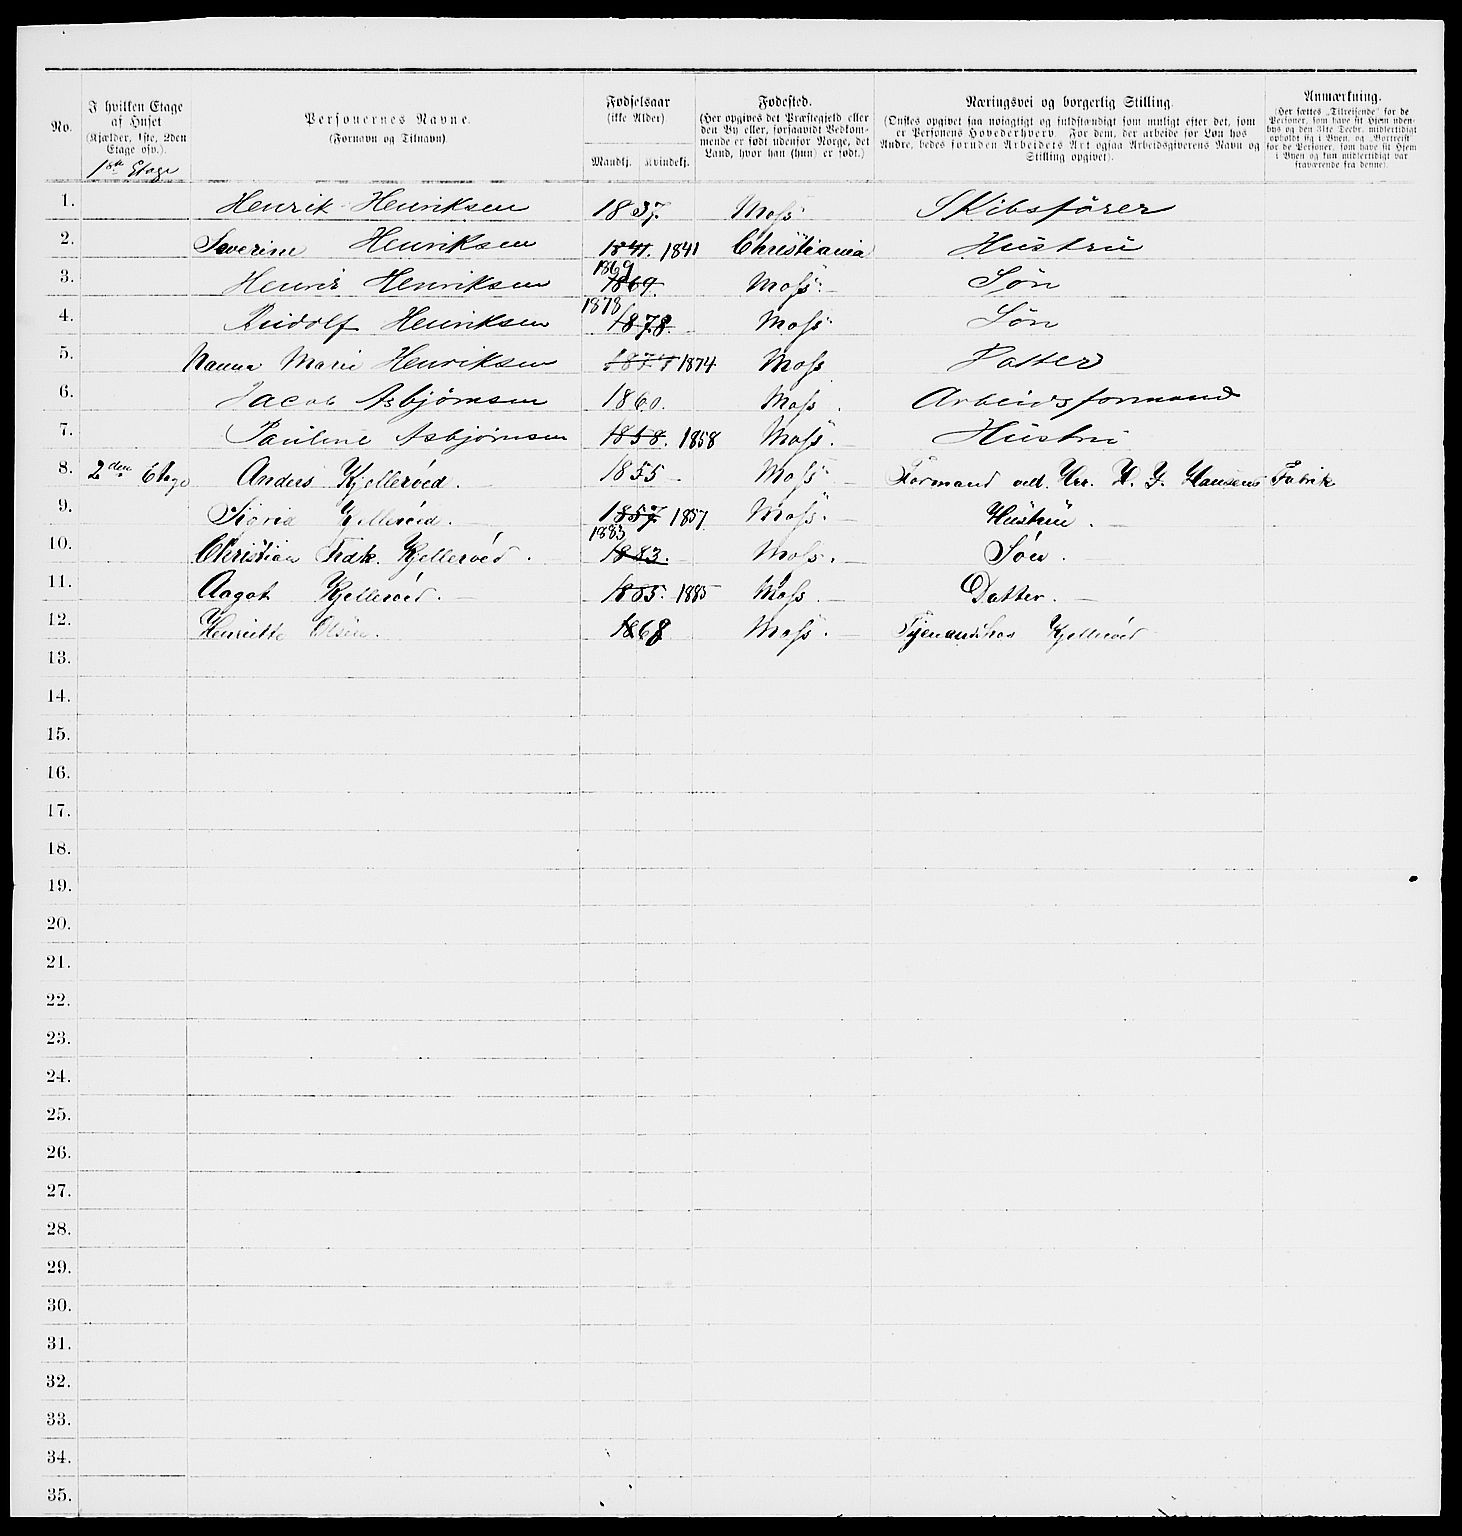 No.
I hvilken Etage
af Huset
(Kjælder, 1ste, 2den
Etage osv.).
1ste Etage
Personernes Navne.
(Fornavn og Tilnavn)
Fødselsaar
(ikke Alder)
Mandkj. Kvindekj.
Fødested.
(Her opgives det Præstegjeld eller
den By eller, forsaavidt Vedkom-
mende er født udenfor Norge, det
Land, hvor han (hun) er født.)
Næringsvei og borgerlig Stilling.
(Ønskes opgivet saa nøiagtigt og fuldstændigt som muligt efter det, som
er Personens Hovederhverv. For dem, der arbeide for Løn hos
Andre, bedes foruden Arbeidets Art ogsaa Arbeidsgiverens Navn og
Stilling opgivet).
Anmærkning.
(Her sættes „Tilreisende" for de
Personer, som have sit Hjem uden-
bys og den 31te Decbr. midlertidigt
opholdt sig i Byen, og „Bortreist"
for de Personer, som have sit Hjem
i Byen og kun midlertidigt var
fraværende fra denne).
1. Henrik Henriksen 1837. Moss Skibsfører
2. Severine Henriksen 1841. 1841 Christiania Hustru
3. Henrik Henriksen 1869. 1869 Moss Søn
4. Rudolf Henriksen 1878. 1878 Moss Søn
5. Nanna Marie Henriksen 1874 1874 Moss Datter
6. Jacob Asbjørnsen 1860. Moss. Arbeidsformand
7. Pauline Asbjørnsen 1858. 1858 Moss. Hustru
8. 2den Etage Anders Kjellerød. 1855 Moss Formand ved Hr. H. J. Hansens Fabrik
9. Sigrid Kjellerød. 1857. 1857 Moss. Hustru.
10. Christian Fredk. Kjellerød. 1883. 1883 Moss. Søn.
11. Aagot Kjellerød. 1885. 1885 Moss. Datter.
12. Henriette Olsen. 1868 Moss. Tjenande hos Kjellerød
13.
14.
15.
16.
17.
18.
19.
20.
21.
22.
23.
24.
25.
26.
27.
28.
29.
30.
31.
32.
33.
34.
35.